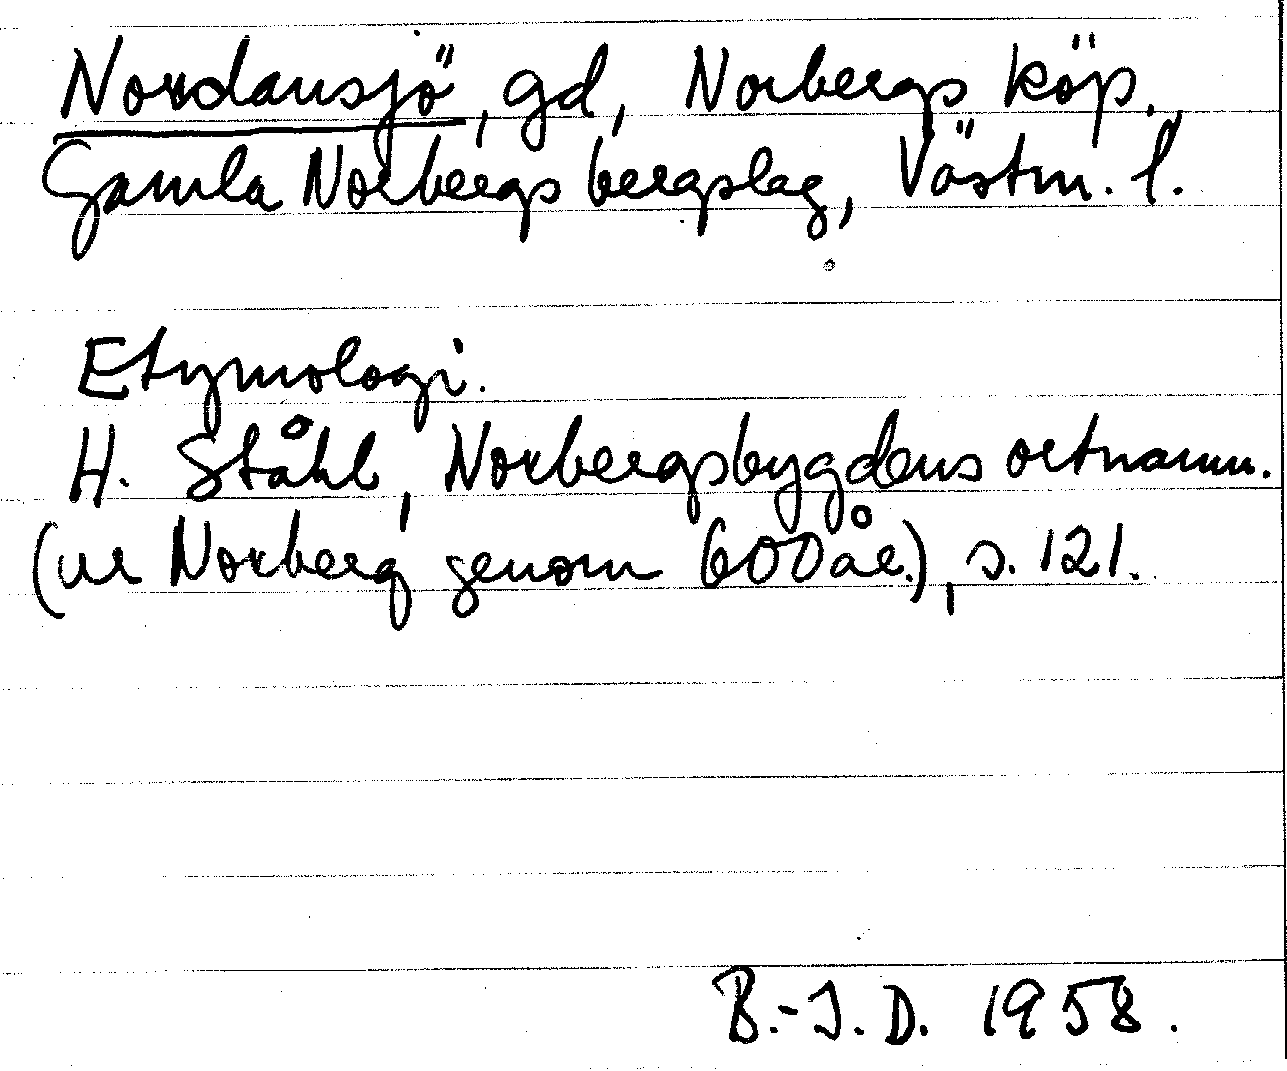 Nordansjö, gd, Norbergs köp.
Gamla Norbergs bergslag, Västm. l.
Etymologi.
H. Ståhl, Norbergsbygdens ortnamn.
(ur Norberg genom 600 år.), s. 121.
B.-I.D. 1958.